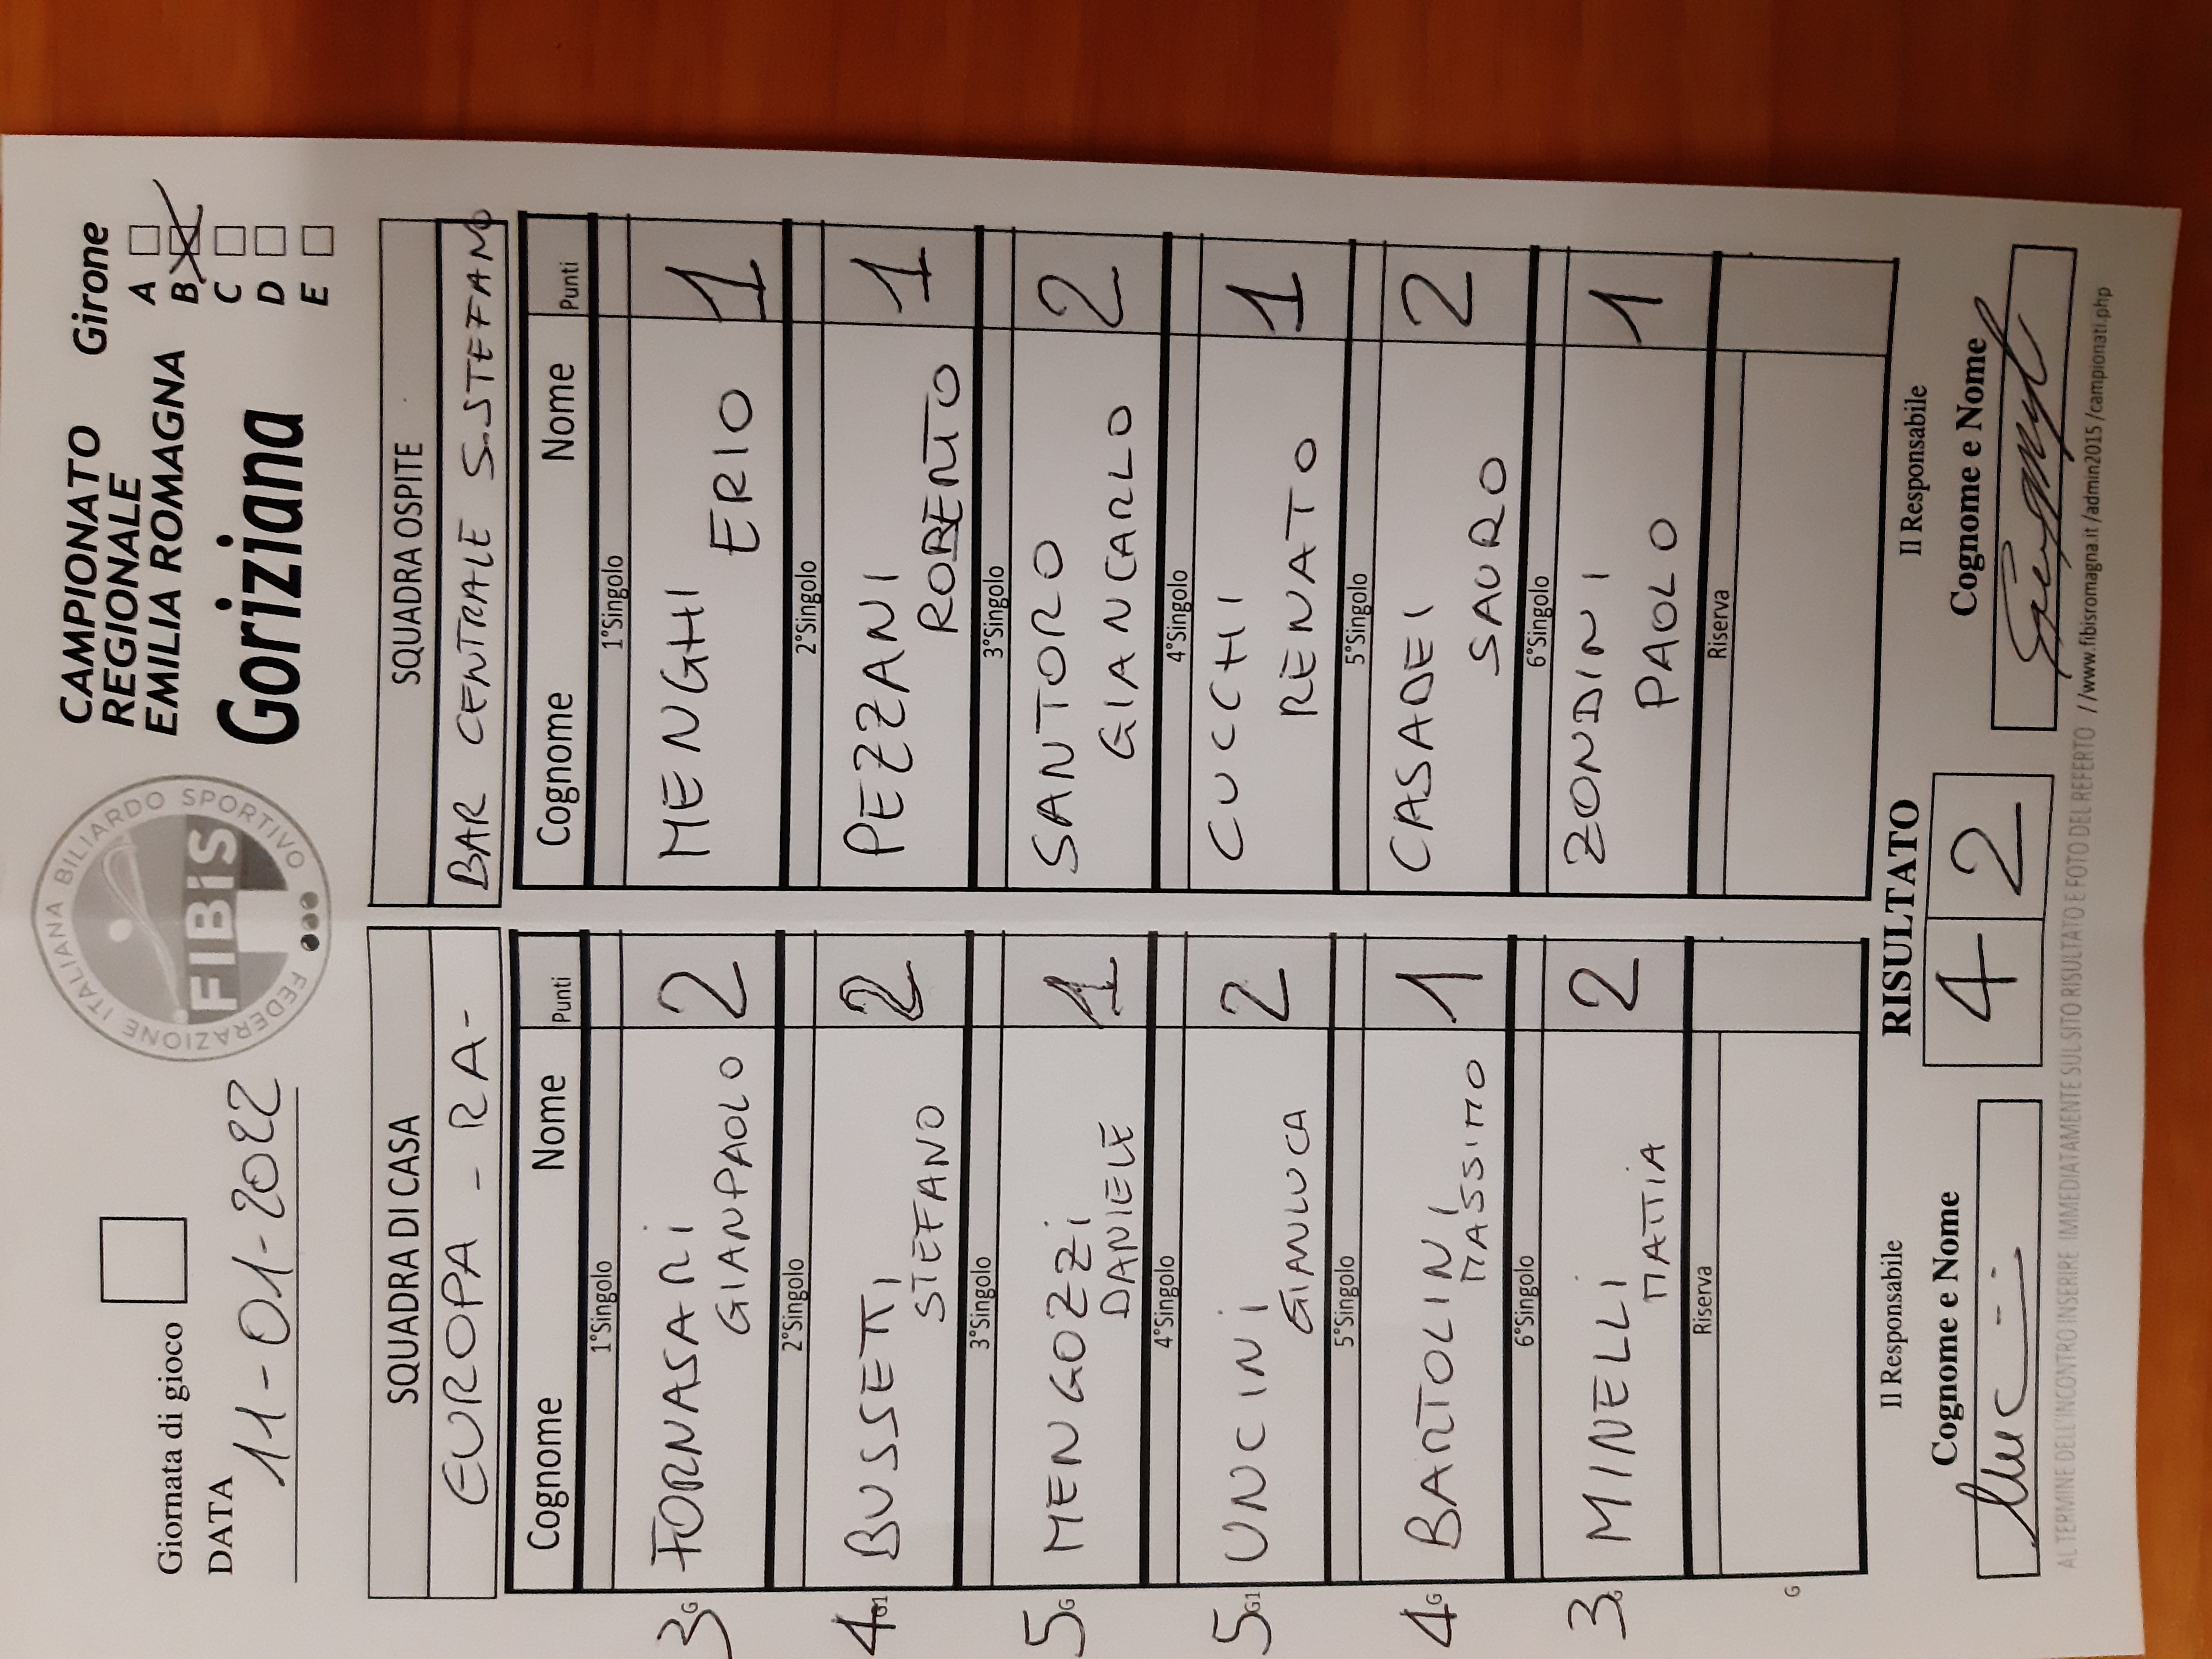 Giornata di gioco
DATA 11-01-2022
FEDERAZIONE ITALIANA BILIARDO SPORTIVO
FIBIS
CAMPIONATO
REGIONALE
EMILIA ROMAGNA
Goriziana
Girone
A
B
C
D
E
SQUADRA DI CASA
EUROPA - RA -
Cognome Nome Punti
1°Singolo
3 G FORNASARI GIANPAOLO 2
2°Singolo
4 G1 BUSSETTI STEFANO 2
3°Singolo
5 G MENGOZZI DANIELE 1
4°Singolo
5 G1 UNCINI GIANLUCA 2
5°Singolo
4 G BARTOLINI MASSIMO 1
6°Singolo
3 G MINELLI MATTIA 2
Riserva
G
SQUADRA OSPITE
BAR CENTRALE S.STEFANO
Cognome Nome Punti
1°Singolo
MENGHI ERIO 1
2°Singolo
PEZZANI ROBERTO 1
3°Singolo
SANTORO GIANCARLO 2
4°Singolo
CUCCHI RENATO 1
5°Singolo
CASADEI SAURO 2
6°Singolo
ZONDINI PAOLO 1
Riserva
Il Responsabile
Cognome e Nome
RISULTATO
4 2
Il Responsabile
Cognome e Nome
AL TERMINE DELL'INCONTRO INSERIRE IMMEDIATAMENTE SUL SITO RISULTATO E FOTO DEL REFERTO //www.fibisromagna.it/admin2015/campionati.php